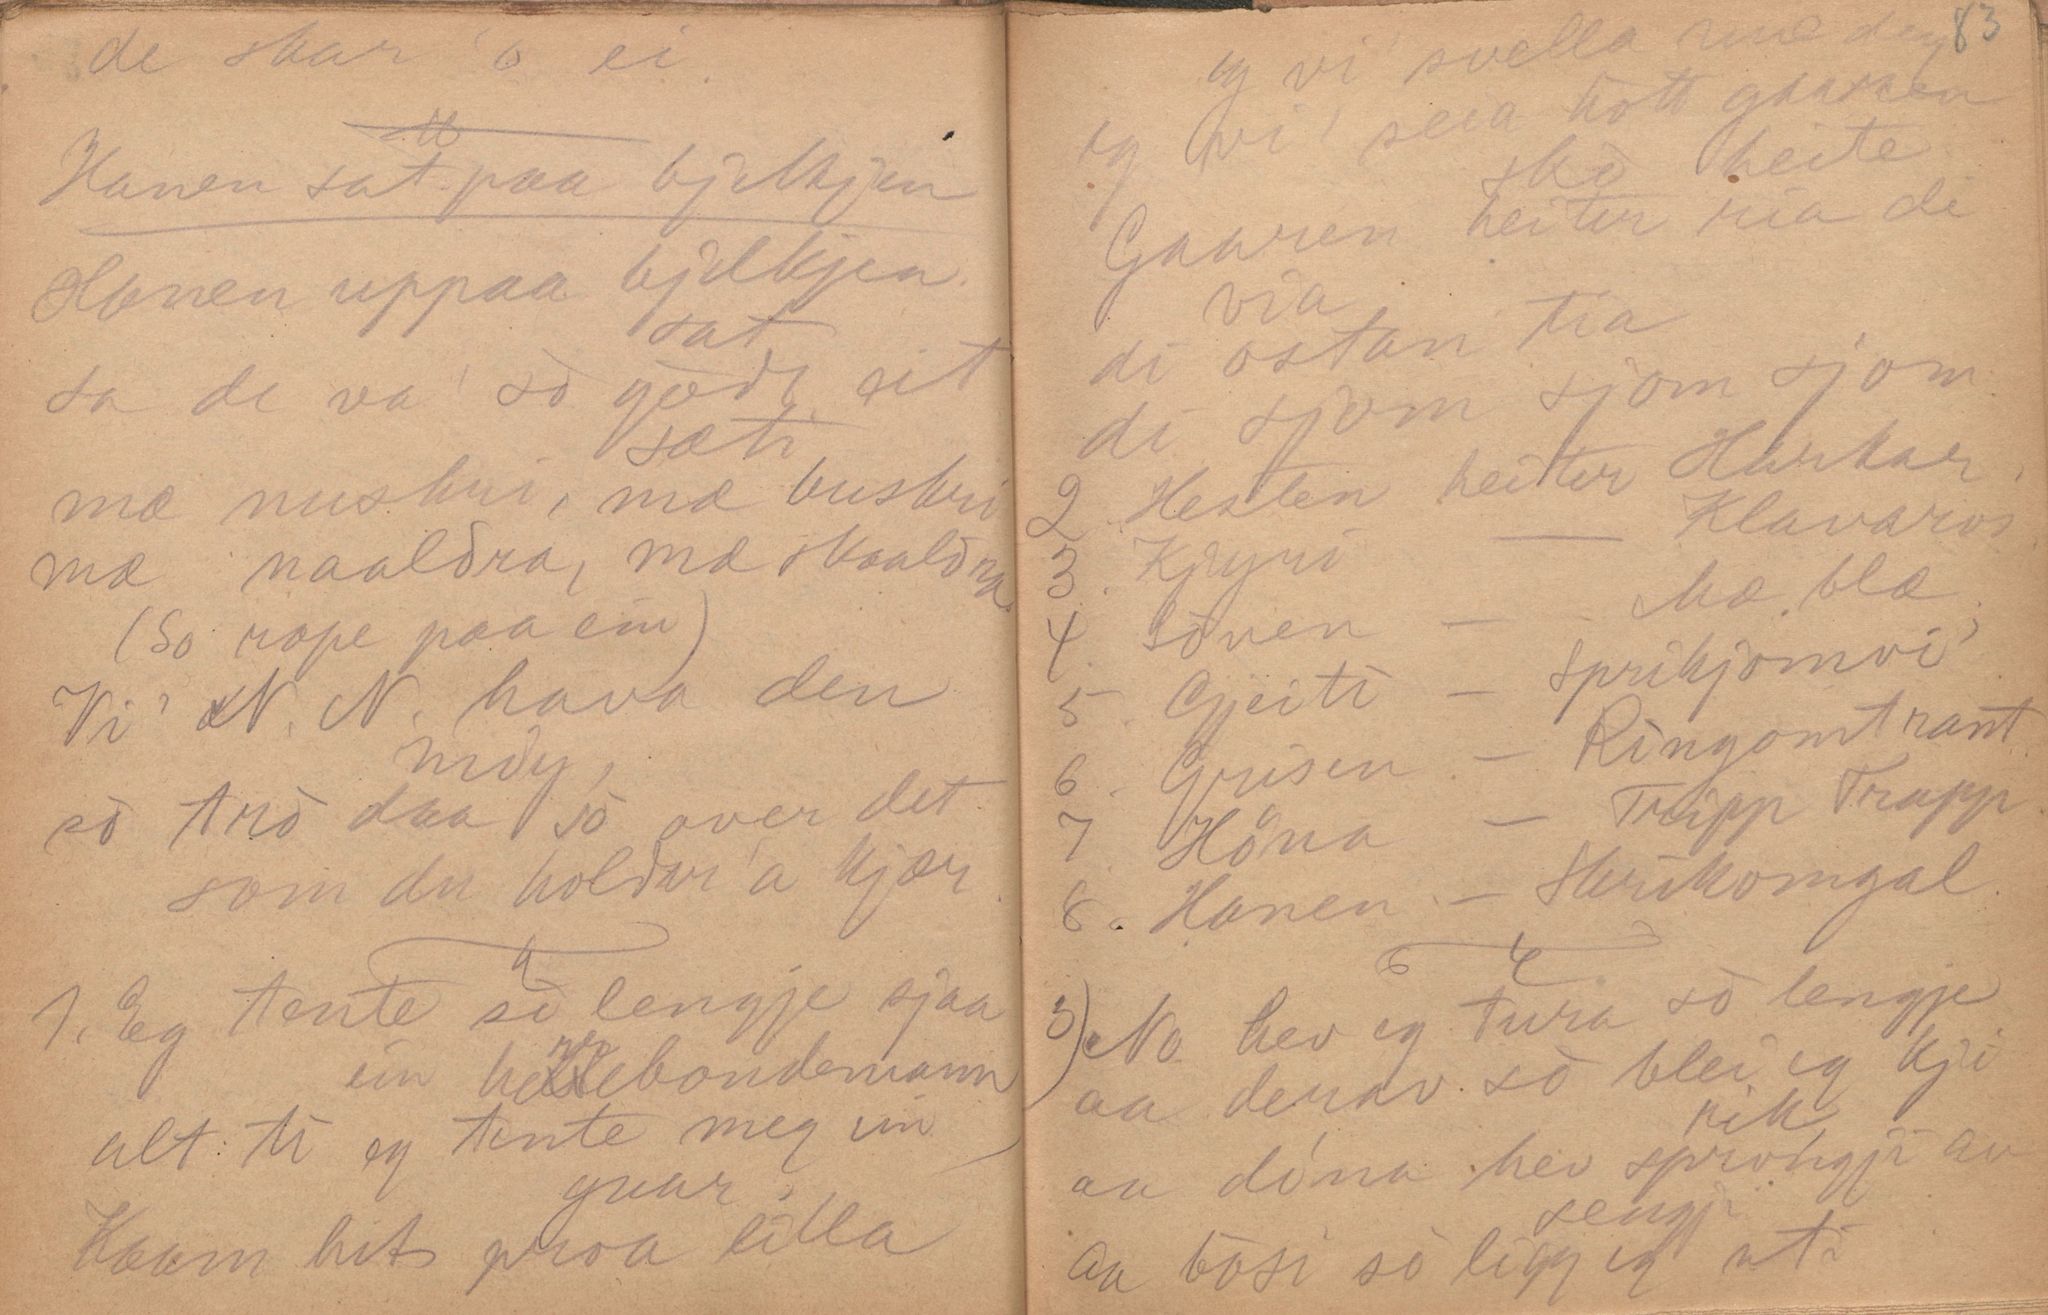 de skar 'o ei.
Hanen sat paa bjelkjen
Hanen uppaa bjelkjen
sat
sa de va' sò gòdt eit
sæti
mæ nuskri, mæ buskri
mæ naaldra, mæ skaaldra
(So rope paa ein)
Vi' N. N. hava den
nidy,
sò trò daa sò over det
som du holder 'a kjær
1. Eg tente sò lengje sjaa
ein bondemann
alt ti eg tente meg ein
gaar
Kaam hit proa lilla
83
eg vi' svella mæ deg
eg vi' seia kott gaaren
skò heite
Gaaren heiter ria di
via
di ostan tia
di sjom sjom sjom
2. Hesten heiter Harkar,
3. Kjyri — Klavaros
4. Sòuen — Mæ, blæ,
5. Gjeiti — Sprikjomvi'
6. Grisen — Ringomtrant
7. Hôna — Tripp Trapp
8. Hanen — Skrikomgal.
3) No hev eg tura sò lengje
aa derav sò blei eg kji
rik
aa dóna hev sprongji av
sengji
aa bòsi sò ligg eg uti